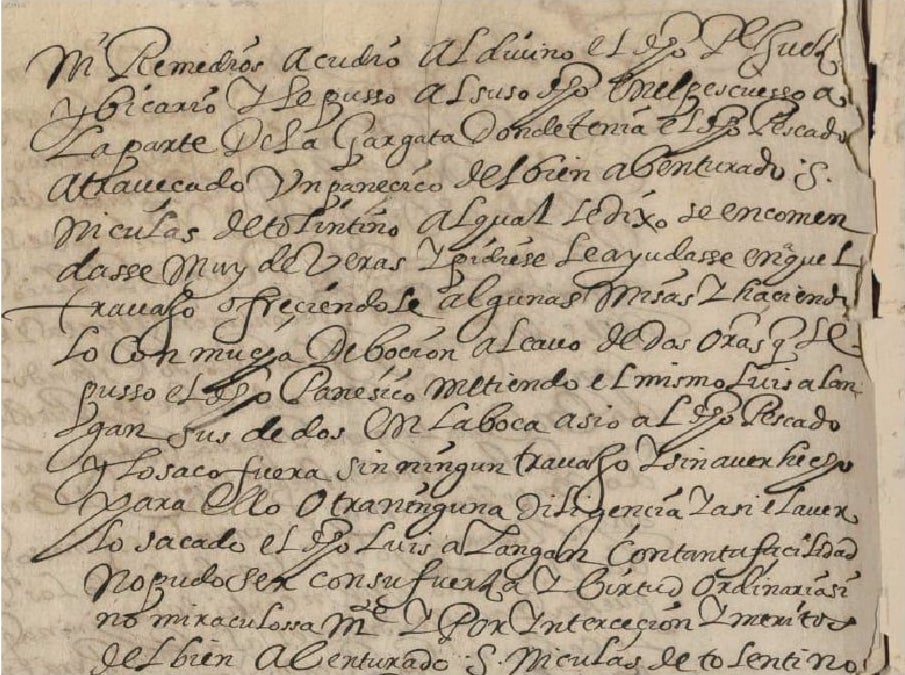 Mi Remedios acudio al divino el dho Pe
y bicario y le pusso al suso dho en el pescuesso a
la parte de la gargata donde tenia el dho Pescado
atravecado Un panecico del bien abenturado S.
Niculas de tolintino al qual le dixo se encomen
dasse Muy de Veras y pidiese le ayudasse en aquel
travaho ofreciendole algunas misas y haciendo
lo con mucha deBocion al cavo de dos oras q se le
pusso el dho Panesico metiendo el mismo Luis alan
gan sus dedos en la boca asio al dho Pescado
y lo saco fuera sin ningun travaho y sin aver hecho
para ello otra ninguna diligencia y asi el aver
lo sacado el dho Luis a langan con tanta facilidad
No pudo ser con su fuersa y birtud ordinaria si
no miraculossa Mte y Por intercecion y meritos
del bien abenturado S. Niculas de tolentino